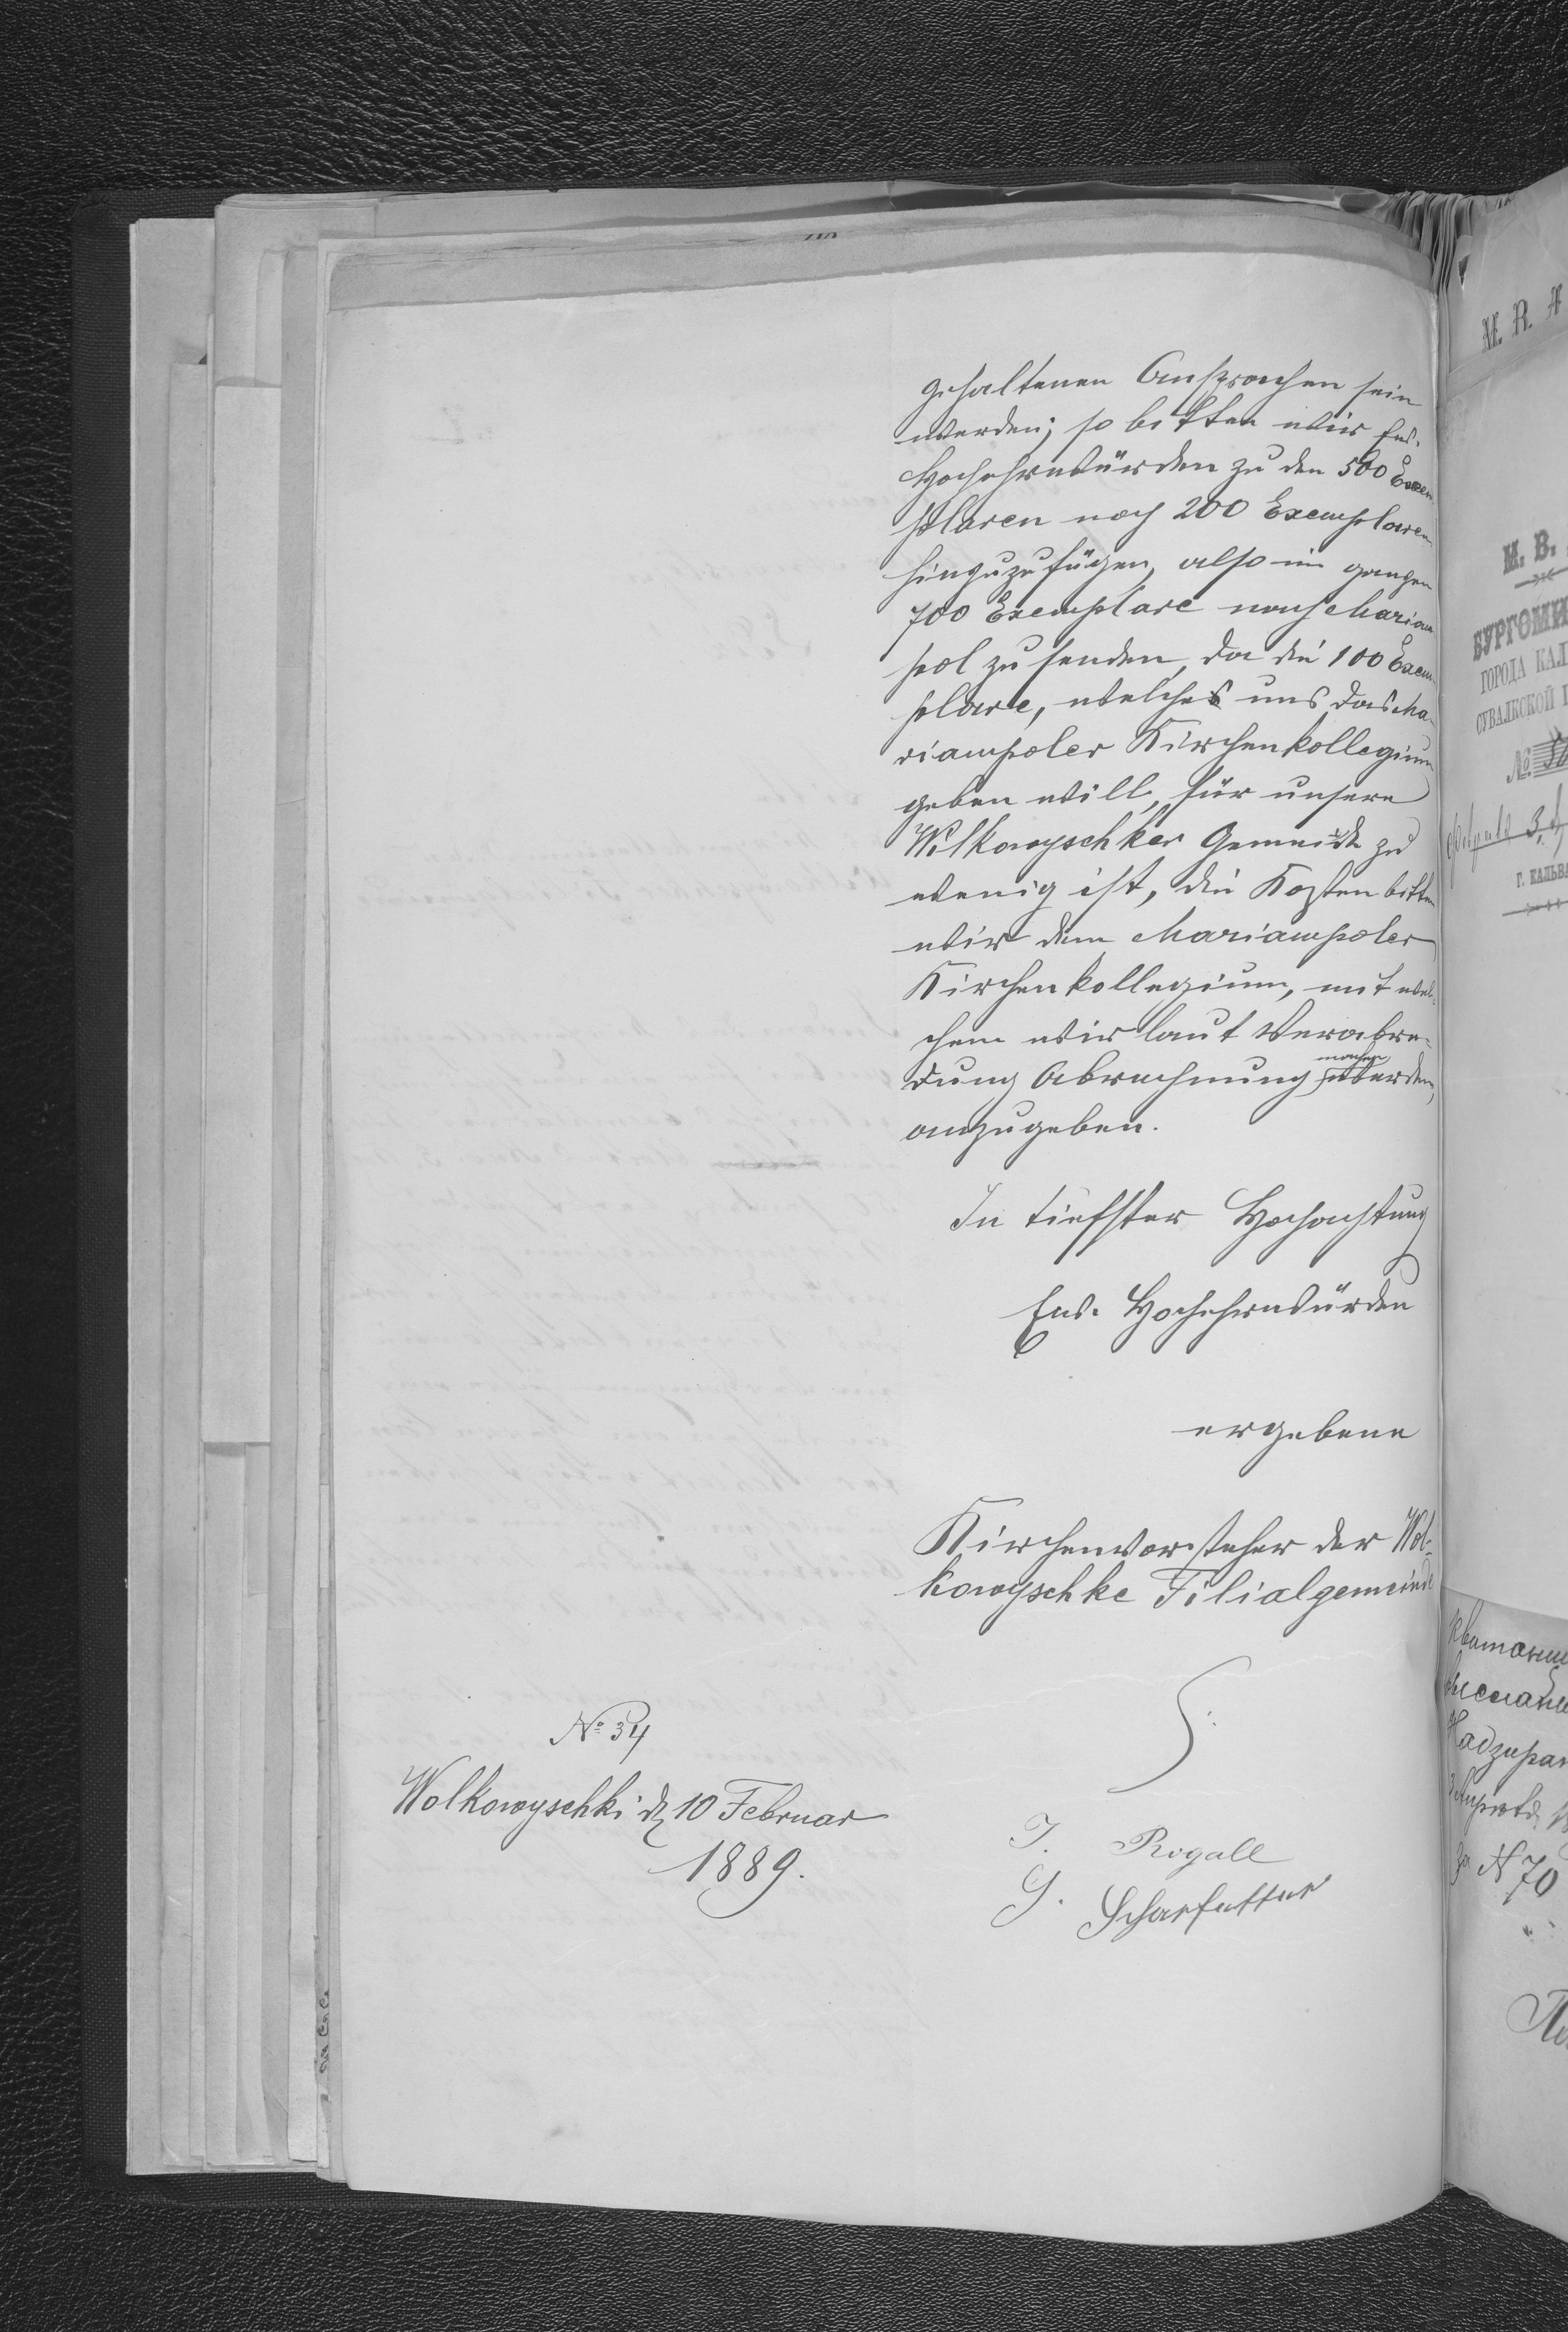 gehaltenen Ansprachen sein
werden; so bitten wir Ew.
Hochehrwürden zu den 500 Exem
plaren noch 200 Exemplaren
hinzuzufügen, also im ganzen
700 Exemplare nach Mariam
pol zu senden, da die 100 Exem
plare, welches uns das Ma-
riampoler Kirchenkollegium
geben will, für unsere
Wolkowyschker Gemeinde zu
wenig ist, die Kosten bitten
wir dem Mariampoler
Kirchenkollegium, mit wel-
chem wir laut Verabre-
dung Abrechnung machen werden,
anzugeben.
In tiefster Hochachtung
Ew. Hochehrwürden
ergebene
Kirchenvorsteher der Wol-
kowyschke Filialgemeinde
J. Rogall
G. Scharfetter
No 34
Wolkowyschki d 10 Februar
1889.
M. R. A
М. В.
БУРГОМИ
ГОРОДА КАЛ
СУВАЛКСКОЙ Г
№
Г. КАЛЬВА
за N 70